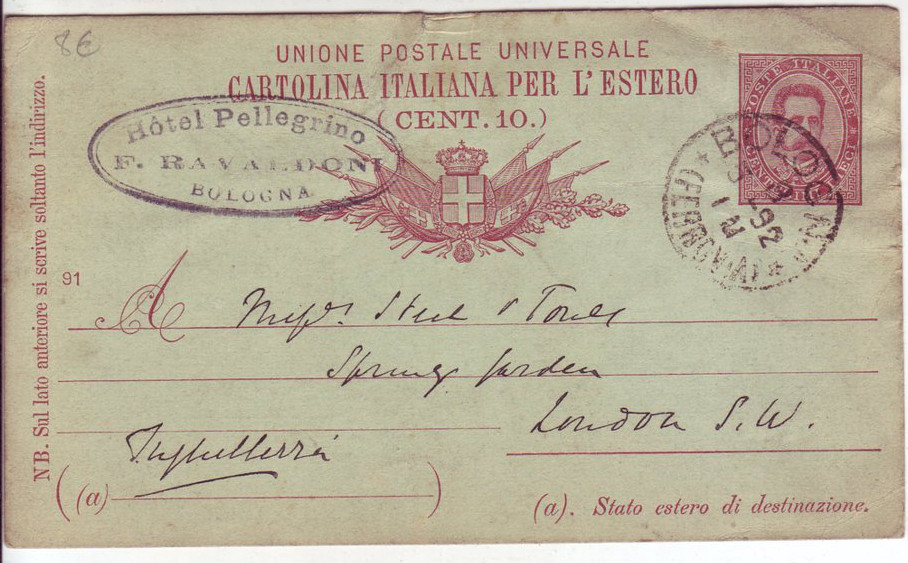 8€
UNIONE POSTALE UNIVERSALE
CARTOLINA ITALIANA PER L'ESTERO
(CENT. 10.)
POSTE ITALIANE
CENTESIMI DIECI
Hôtel Pellegrino
F. RAVALDONI
BOLOGNA
BOLOGNA
92
1 M
(FERROVIA)
NB. Sul lato anteriore si scrive soltanto l'indirizzo.
91
A Messrs.
Spring Garden
London S.W.
Inghilterra
(a)
(a). Stato estero di destinazione.